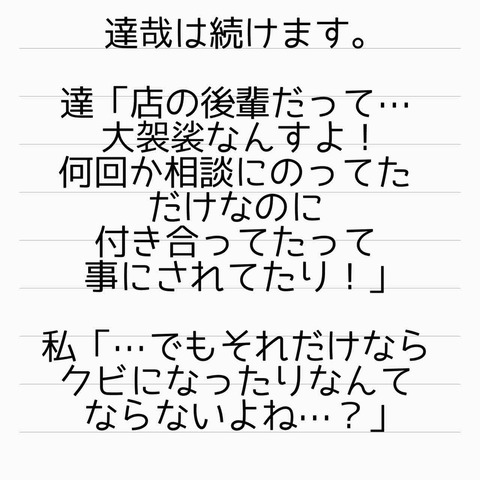 達哉は続けます。
達「店の後輩だって…
大袈裟なんすよ！
何回か相談にのってた
だけなのに
付き合ってたって
事にされてたり！」
私「…でもそれだけなら
クビになったりなんて
ならないよね…？」